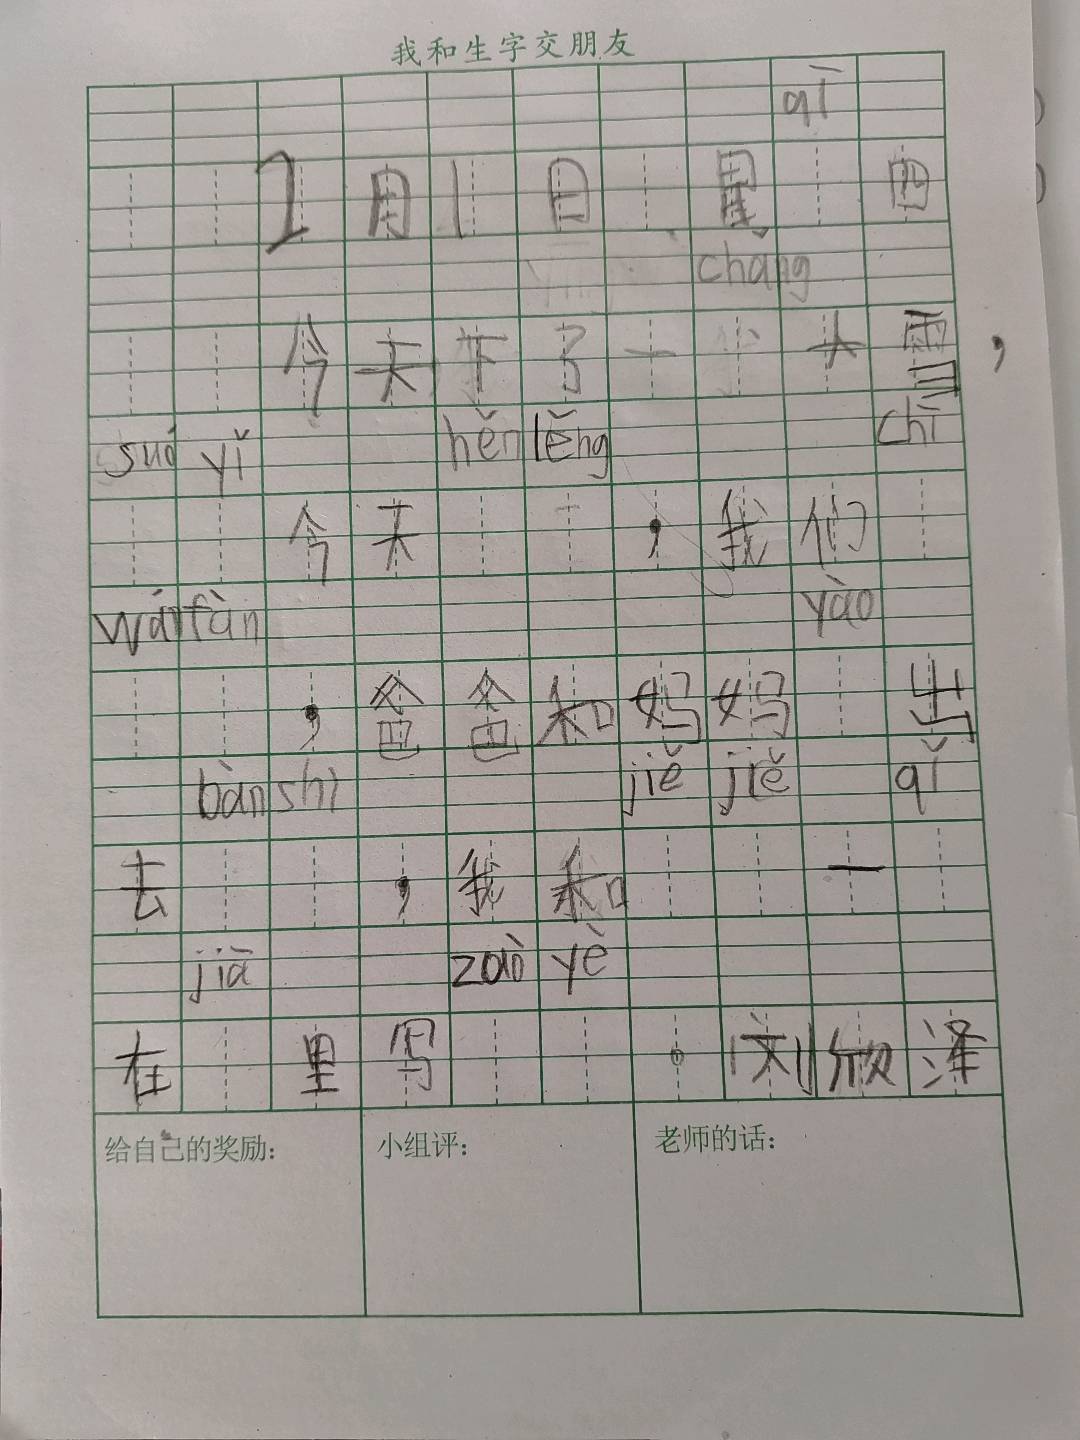 我和生字交朋友
qī
1月1日 星 四
chǎng
今天下了一 大雪，
suǒ yǐ hěn lěng chī
今天 ，我们
wǎn fàn yào
，爸爸和妈妈 出
bàn shì jiě jiě qǐ
去 ，我和 一
jiā zuò yè
在 里写 。刘欣泽
给自己的奖励： 小组评： 老师的话：